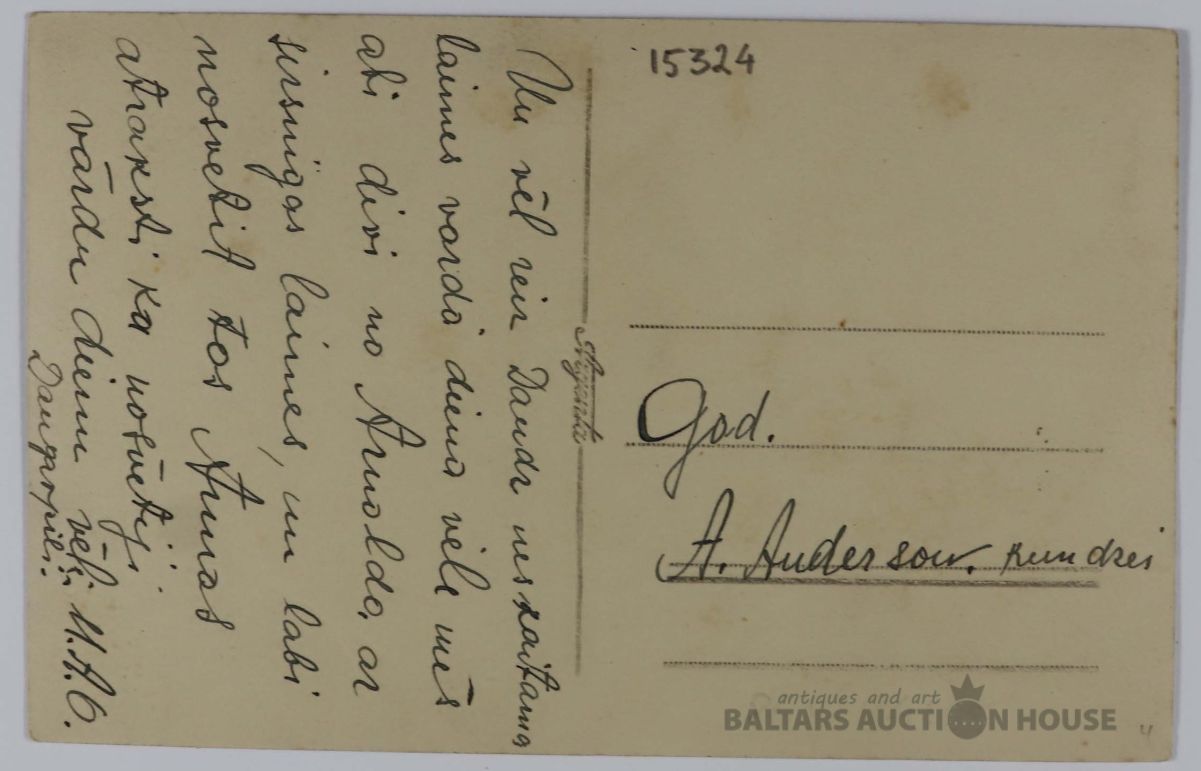 15324
Un vēl reiz Daudz neskaitama
laimes vārda diena vēle mēs
abi divi no Arnolda, ar
sirsnigas laimes, un labi
nosvetit tos Annas
atraksti ka nosvētiji
vārdu dienu vēli M.A.O.
Daugavpilī
God.
A. Anderson. kundzei
antiques and art
BALTARS AUCTION HOUSE